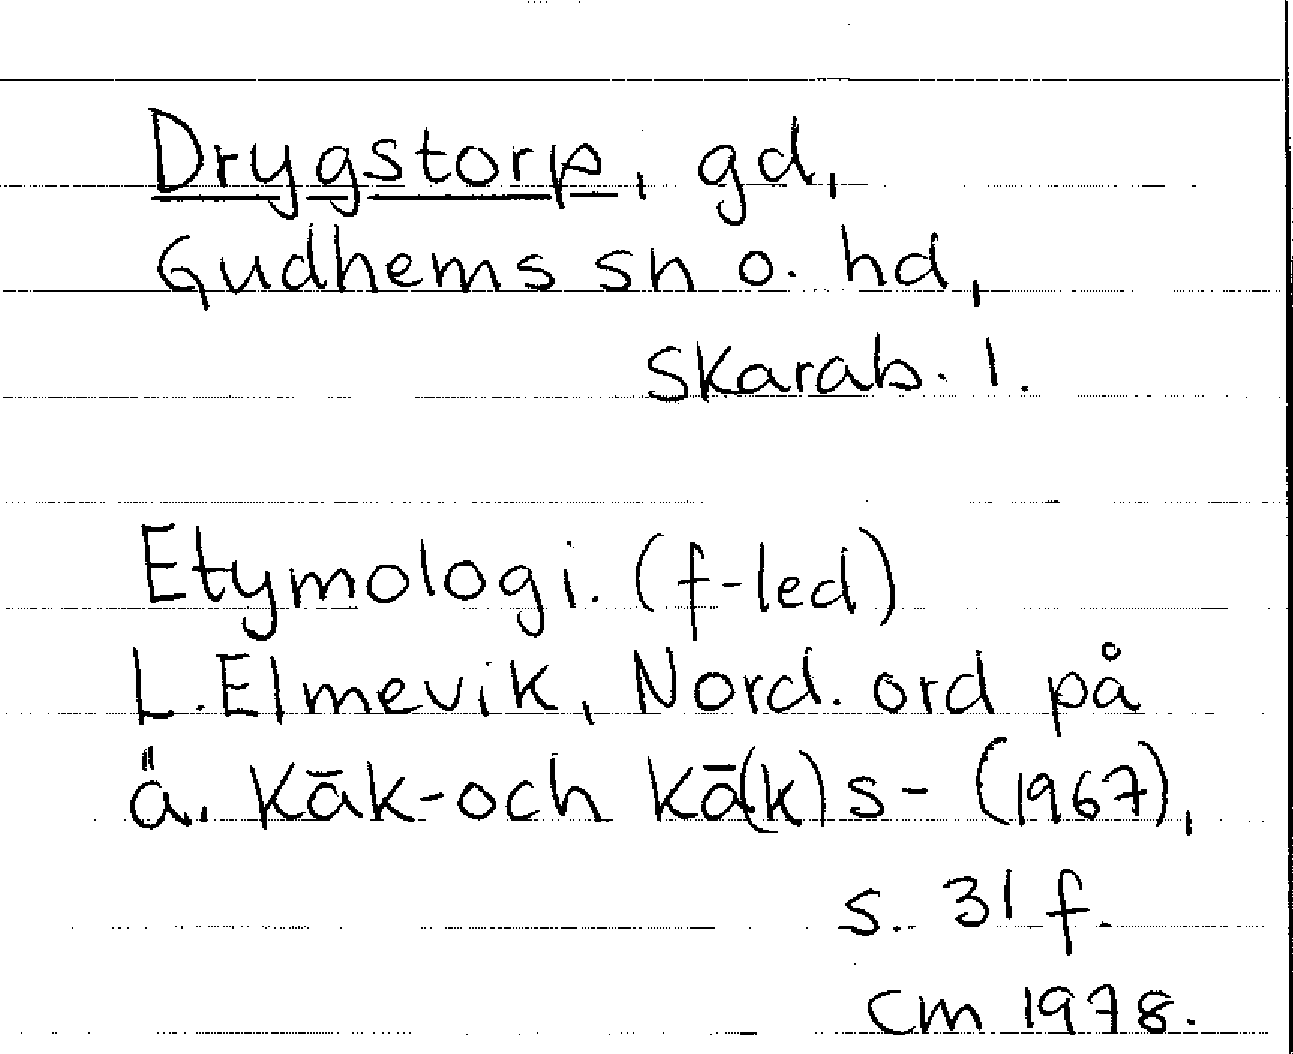 Drygstorp, gd,
Gudhems sn o. hd,
Skarab. l.
Etymologi. (f-led)
L. Elmevik, Nord. ord på
ä. kāk- och kā(k)s- (1967),
s. 31 f.
CM 1978.